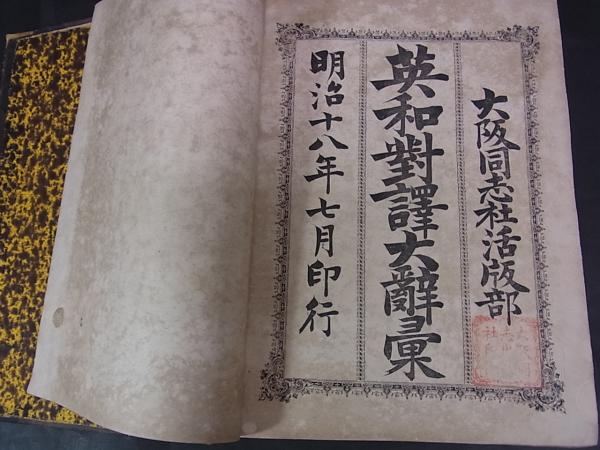 大阪同志社活版部
英和對譯大辭彙
明治十八年七月印行